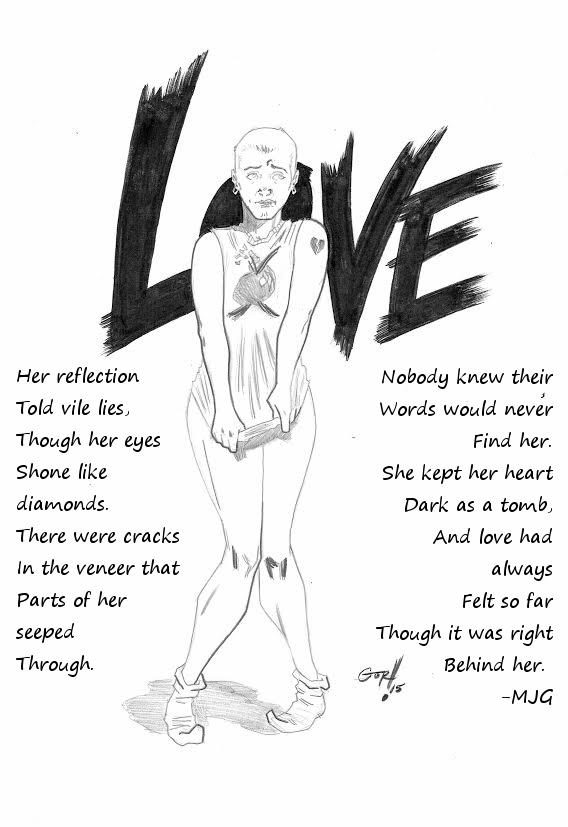 LOVE
Her reflection
Told vile lies,
Though her eyes
Shone like
diamonds.
There were cracks
In the veneer that
Parts of her
seeped
Through.
Nobody knew their
Words would never
Find her.
She kept her heart
Dark as a tomb,
And love had
always
Felt so far
Though it was right
Behind her.
-MJG
'15